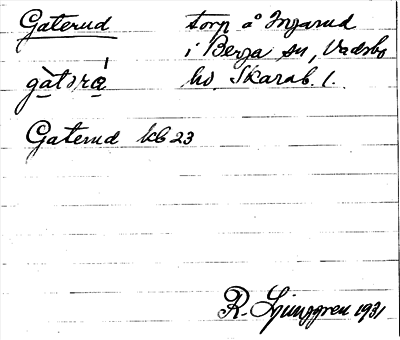 Gaterud torp å Ingarud
i Berga sn, Vadsbo
gàtərá hd. Skarab. l.
Gaterud kb 23
R. Ljunggren 1931